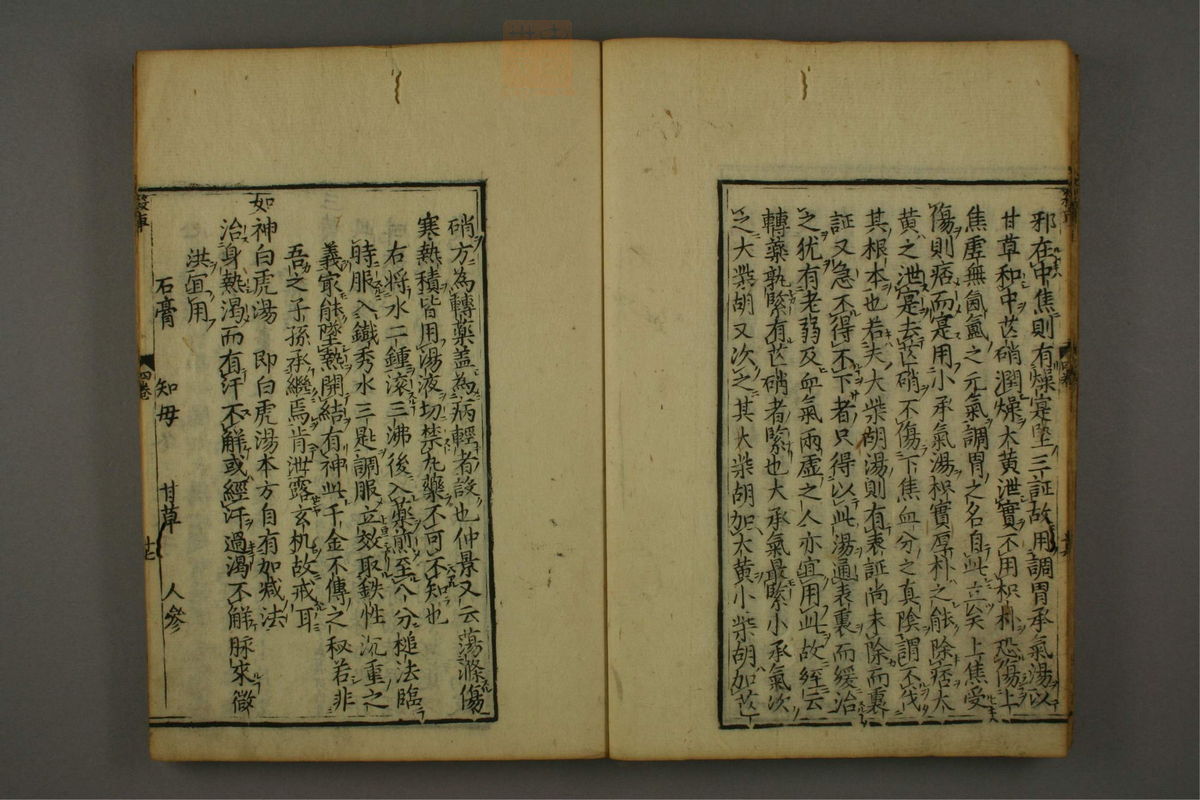 邪在中焦則有燥寔堅三証故用調胃承氣湯以
甘草和中芒硝潤燥大黄泄實不用枳朴恐傷上
焦虚無氤氳之元氣調胃之名自此立矣上焦受
傷則痞而寔用小承氣湯枳實厚朴之能除痞大
黄之泄寔去芒硝不傷下焦血分之真陰謂不伐
其根本也若夫大柴胡湯則有表証尚未除而裏
証又急不得不下者只得以此湯通表裏而緩治
之犹有老弱及血氣兩虚之人亦宜用此故経云
轉藥孰緊有芒硝者緊也大承氣最緊小承氣次
之大柴胡又次之其大柴胡加大黄小柴胡加芒
硝方為轉藥盖為病輕者設也仲景又云蕩滌傷
寒熱積皆用湯液切禁丸藥不可不知也
右将水二鍾滚三沸後入藥煎至八分槌法臨
時服入鐵秀水三匙調服立效取鉄性沉重之
義㝡能墜熱開結有神此千金不傳之秘若非
吾之子孫承繼焉肯泄露玄机故戒耳
如神白虎湯 即白虎湯本方自有加减法
治身熱渴而有汗不解或經汗過渴不解脉來微
洪宜用
石膏 知母 甘草 人參
四巻
四巻